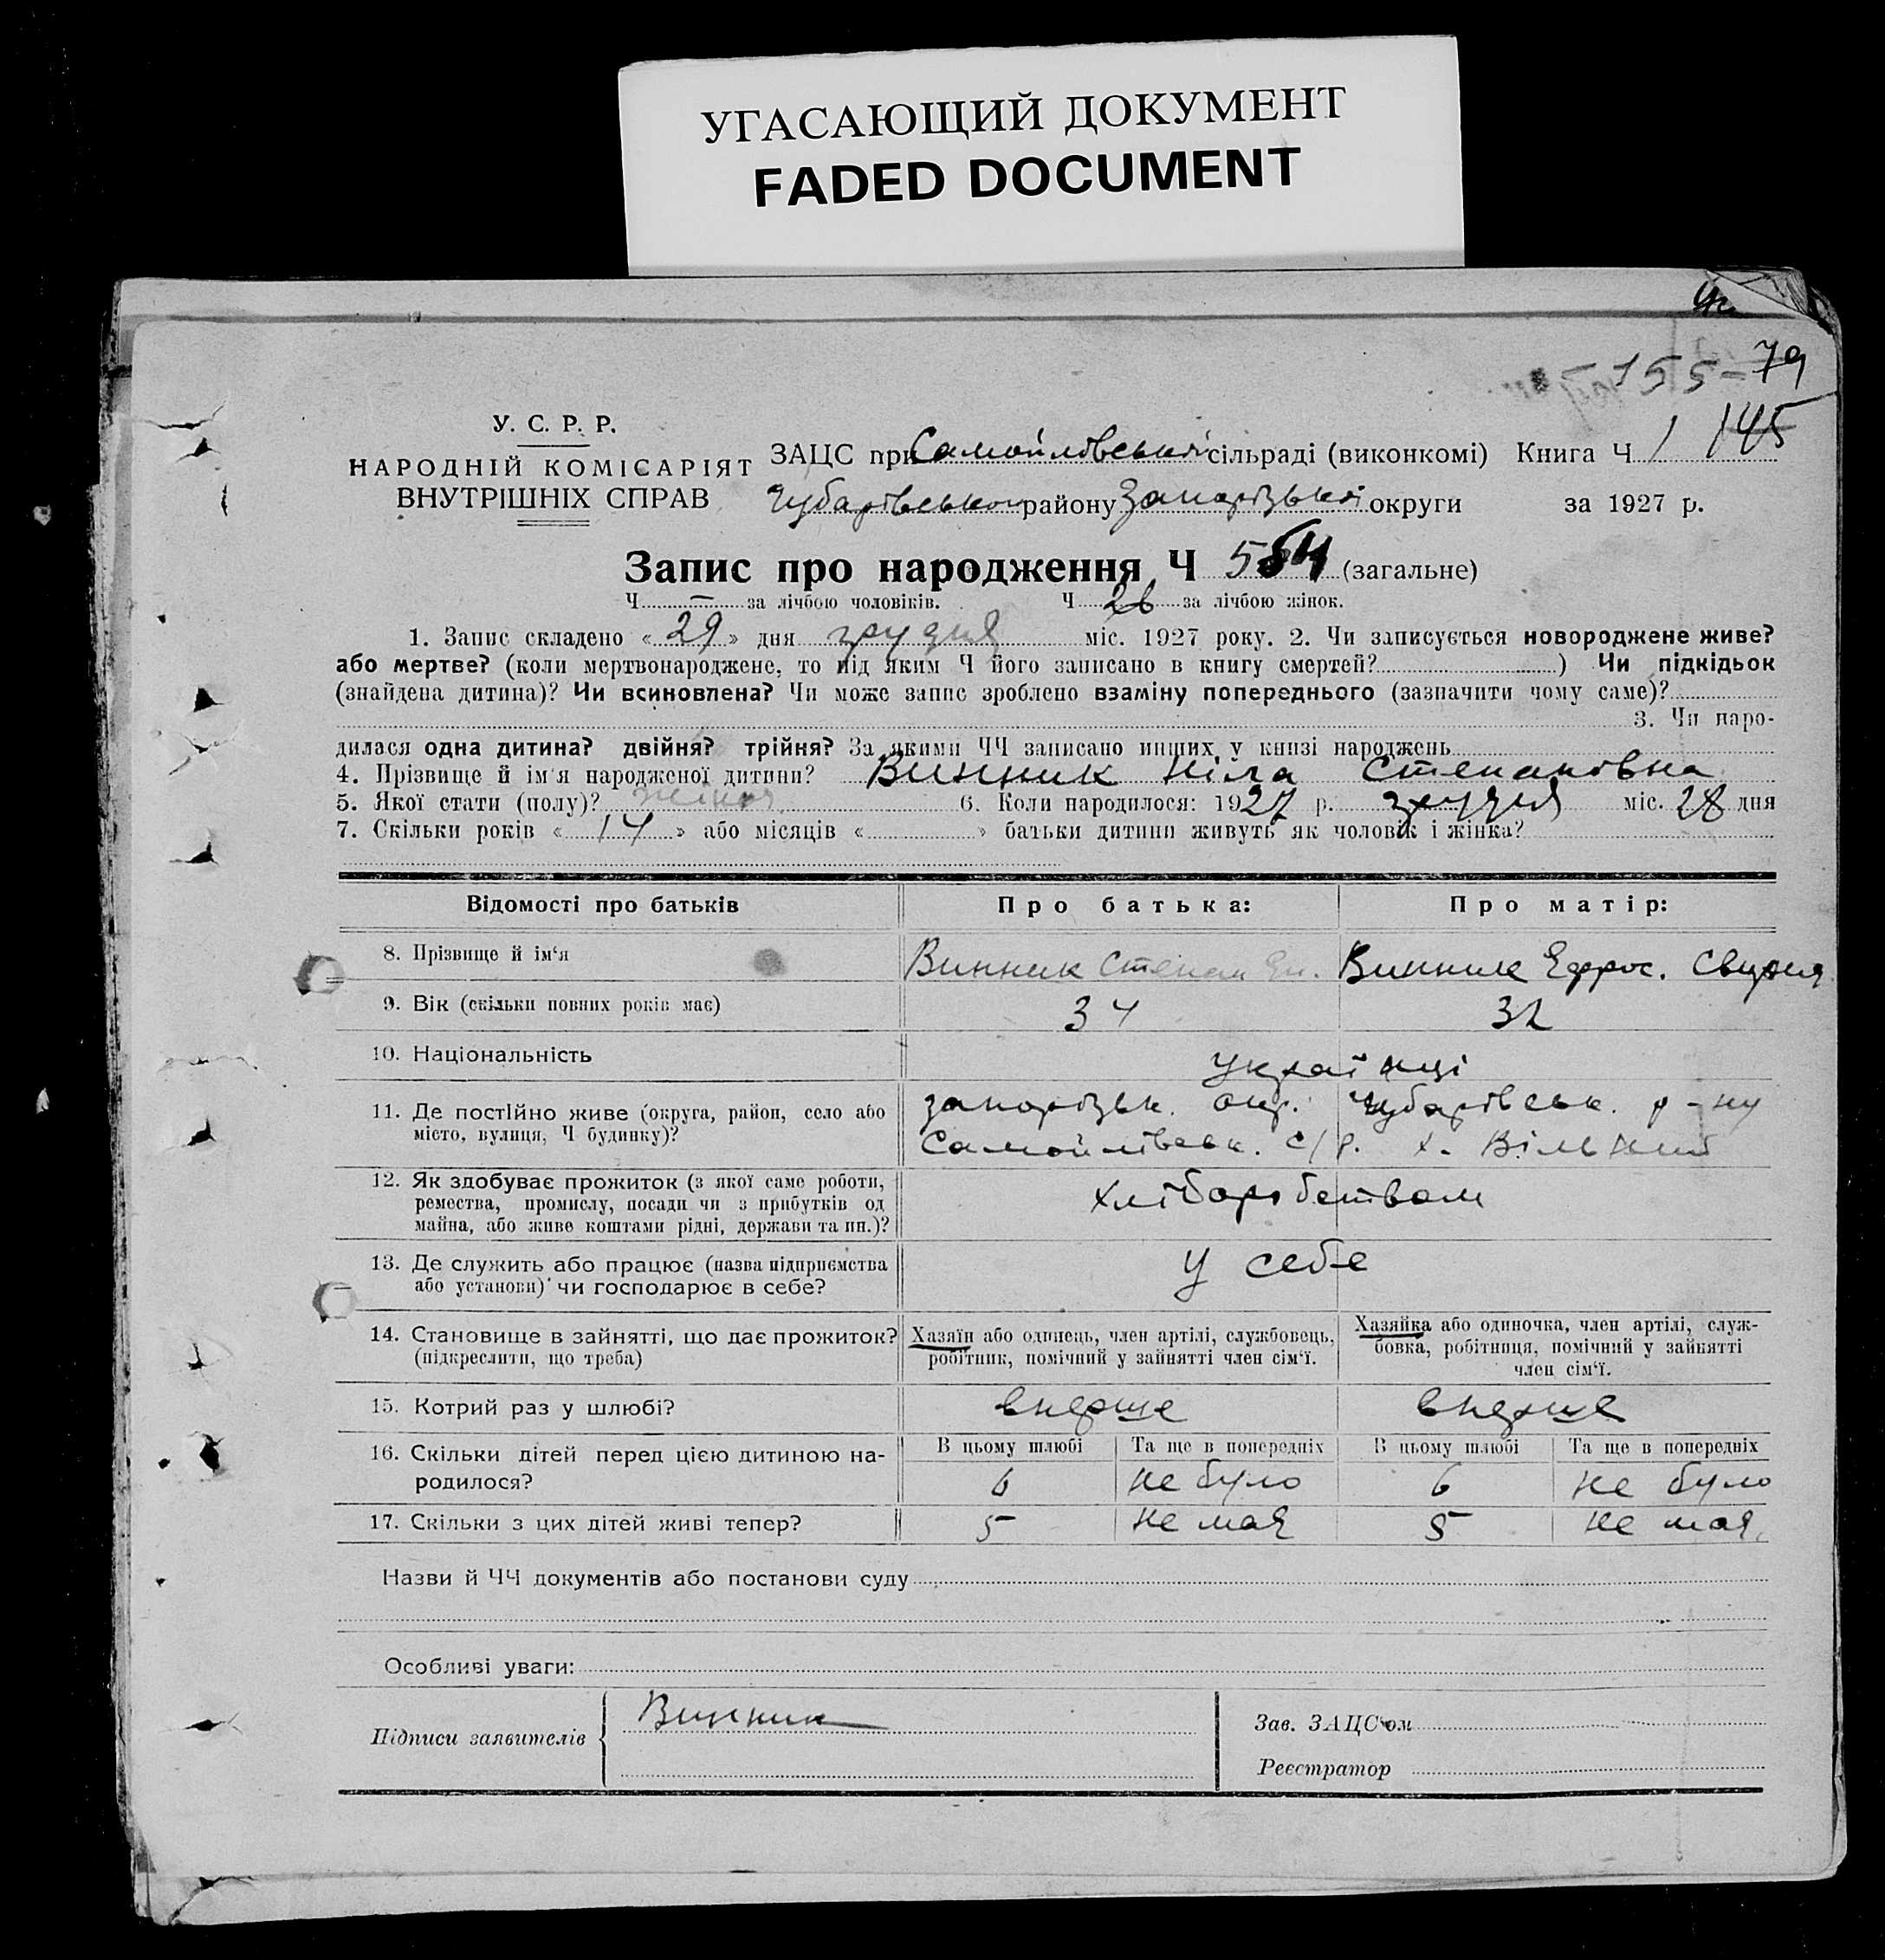 УГАСАЮЩИЙ ДОКУМЕНТ
FADED DOCUMENT
155-
79
145
У. С. Р. Р.
НАРОДНІЙ КОМІСАРІЯТ
ВНУТРІШНІХ СПРАВ
ЗАЦС при Самойлівській сільраді (виконкомі) Книга Ч 1
Чубарівського району Запорізької округи за 1927 р.
Запис про народження Ч (загальне)
Ч — за лічбою чоловіків. Ч 26 за лічбою жінок.
1. Запис складено « 29 » дня грудня міс. 1927 року. 2. Чи записується новороджене живе?
або мертве? (коли мертвонароджене, то під яким Ч його записано в книгу смертей? ) Чи підкідьок
(знайдена дитина)? Чи всиновлена? Чи може запис зроблено взаміну попереднього (зазначити чому саме)?
3. Чи наро-
дилася одна дитина? двійня? трійня? За якими ЧЧ записано инших у книзі народжень
4. Прізвище й ім'я народженої дитини? Винник Ніла Степановна
5. Якої стати (полу)? жіноч 6. Коли народилося: 1927 р. грудня міс. 28 дня
7. Скільки років « 14 » або місяців « » батьки дитини живуть як чоловік і жінка?
Відомості про батьків Про батька: Про матір:
8. Прізвище й ім'я Винник Степан Винник Ефрос.
9. Вік (скільки повних років має) 34 32
10. Національність українці
11. Де постійно живе (округа, район, село або запорізьк. окр. Чубарівськ. р-ну
місто, вулиця, Ч будинку)? Самойлівськ. с/р. х. Вільний
12. Як здобуває прожиток (з якої саме роботи,
ремества, промислу, посади чи з прибутків од хліборобством
майна, або живе коштами рідні, держави та ин.)?
13. Де служить або працює (назва підприємства у себе
або установи) чи господарює в себе?
14. Становище в зайнятті, що дає прожиток? Хазяїн або одинець, член артілі, службовець, Хазяйка або одиночка, член артілі, служ-
(підкреслити, що треба) робітник, помічний у зайнятті член сім'ї. бовка, робітниця, помічний у зайнятті
член сім'ї.
15. Котрий раз у шлюбі? вперше вперше
16. Скільки дітей перед цією дитиною на- В цьому шлюбі Та ще в попередніх В цьому шлюбі Та ще в попередніх
родилося? 6 не було 6 не було
17. Скільки з цих дітей живі тепер? 5 не має 5 не має
Назви й ЧЧ документів або постанови суду
Особливі уваги:
Підписи заявителів Винник Зав. ЗАЦС'ом
Реєстратор